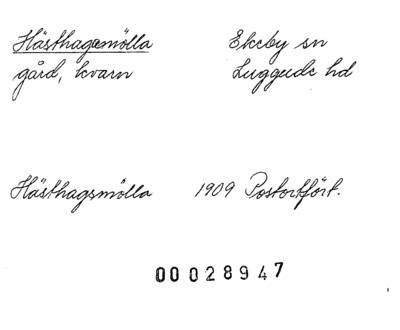 Hästhagamölla Ekeby sn
gård, kvarn Luggude hd
Hästhagsmölla 1909 Postortfört.
00028947